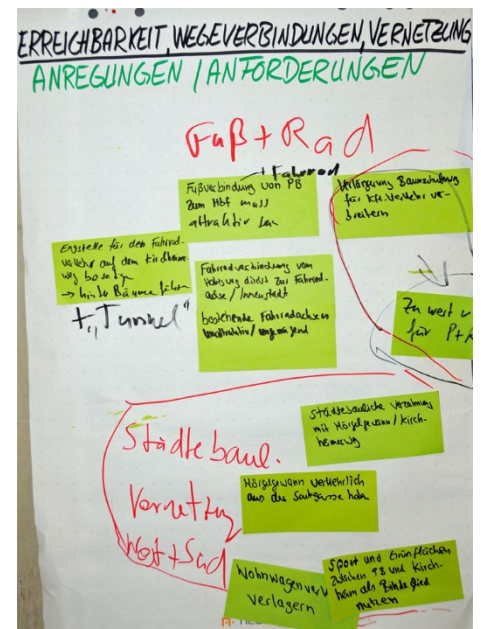 ERREICHBARKEIT, WEGEVERBINDUNGEN, VERNETZUNG
ANREGUNGEN / ANFORDERUNGEN
Fuß + Rad
+ Fahrrad
Fußverbindung von PB
zum Hbf muss
attraktiv sein
Verlängerung Baumschulweg
für Kfz-Verkehr
breitern
Engstelle für den Fahrrad-
verkehr auf dem Kirchheimer-
weg
→ hinter Bäume führen
+ "Tunnel"
Fahrradverbindung vom
direkt zur Fahrrad-
achse / Innenstadt
bestehende Fahrradachsen
unattraktiv / ungenügend
Zu weit
für P+R
Städtebaul.
Vernetzung
West + Süd
Städtebauliche Verzahnung
mit Hörgelgewann / Kirch-
heimerweg
Hörgelgewann verkehrlich
aus der Sackgasse holen
Wohnwagen
verlagern
Sport und Grünflächen
zwischen PB und Kirch-
heim als Bindeglied
nutzen